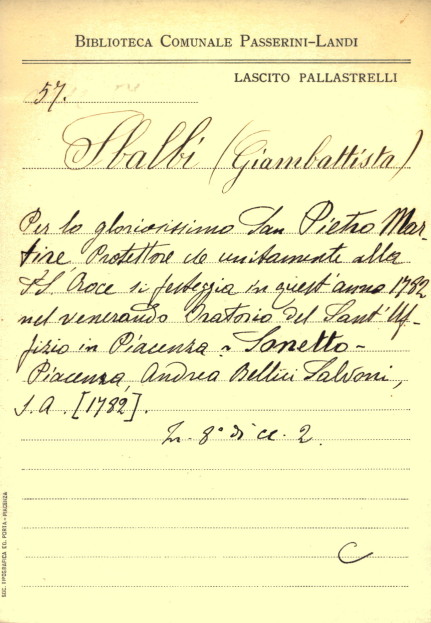 BIBLIOTECA COMUNALE PASSERINI-LANDI
LASCITO PALLASTRELLI
57.
Sbalbi (Giambattista)
Per lo gloriosissimo San Pietro Mar-
tire Protettore che unitamente alla
SS. Croce si festeggia in quest'anno 1782
nel venerando Oratorio del Sant'Uf-
fizio in Piacenza - Sonetto -
Piacenza, Andrea Bellici Salvoni,
s.a. [1782].
In 8° di cc. 2.
C
SOC. TIPOGRAFICA ED. PORTA - PIACENZA